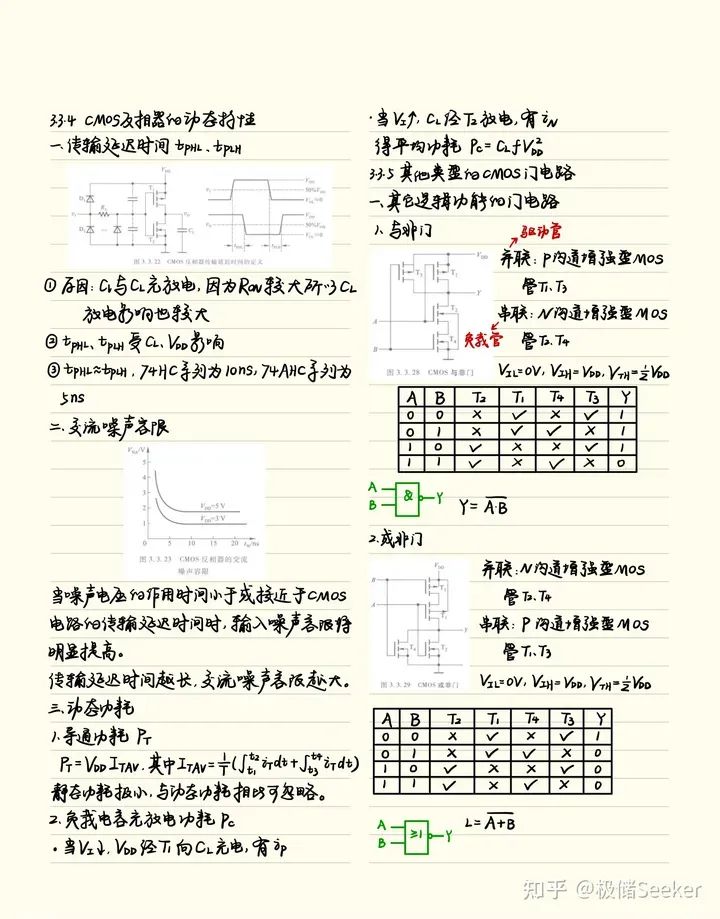 3.3.4 CMOS反相器的动态特性
一、传输延迟时间 tPHL、tPLH
图 3.3.22 CMOS 反相器传输延迟时间的定义
①原因：CI与CL充放电，因为RON较大所以CL
放电影响也较大
②tPHL、tPLH受CL、VDD影响
③tPHL≈tPLH，74HC系列为10ns，74AHC系列为
5ns
二、交流噪声容限
VNA/V
5
4
3
2
1
VDD=5 V
VDD=3 V
0 5 10 15 20 tw/ns
图 3.3.23 CMOS 反相器的交流
噪声容限
当噪声电压的作用时间小于或接近于CMOS
电路的传输延迟时间时，输入噪声容限将
明显提高。
传输延迟时间越长，交流噪声容限越大。
三、动态功耗
1、导通功耗 PT
PT=VDD ITAV，其中ITAV=1/T(∫t1t2 iTdt+∫t3t4 iTdt)
静态功耗极小，与动态功耗相比可忽略。
2、负载电容充放电功耗 PC
·当VI↓，VDD经T1向CL充电，有iP
·当VI↑，CL经T2放电，有iN
得平均功耗 PC=CLfVDD²
3.3.5 其他类型的CMOS门电路
一、其它逻辑功能的门电路
1、与非门
驱动管
并联：P沟道增强型MOS
管T1、T3
串联：N沟道增强型MOS
管T2、T4
负载管
VDD
T3 T1
Y
A
T2
B
T4
图 3.3.28 CMOS 与非门
VIL=0V，VIH=VDD，VTH=½VDD
A B T2 T1 T4 T3 Y
0 0 × ✓ × ✓ 1
0 1 × ✓ ✓ × 1
1 0 ✓ × × ✓ 1
1 1 ✓ × ✓ × 0
A
B
&
Y
Y=A·B
2、或非门
并联：N沟道增强型MOS
管T2、T4
串联：P沟道增强型MOS
管T1、T3
VDD
B
A
Y
T4 T2
图 3.3.29 CMOS 或非门
VIL=0V，VIH=VDD，VTH=½VDD
A B T2 T1 T4 T3 Y
0 0 × ✓ × ✓ 1
0 1 × ✓ ✓ × 0
1 0 ✓ × × ✓ 0
1 1 ✓ × ✓ × 0
A
B
≥1
Y
L=A+B
知乎 @极储Seeker